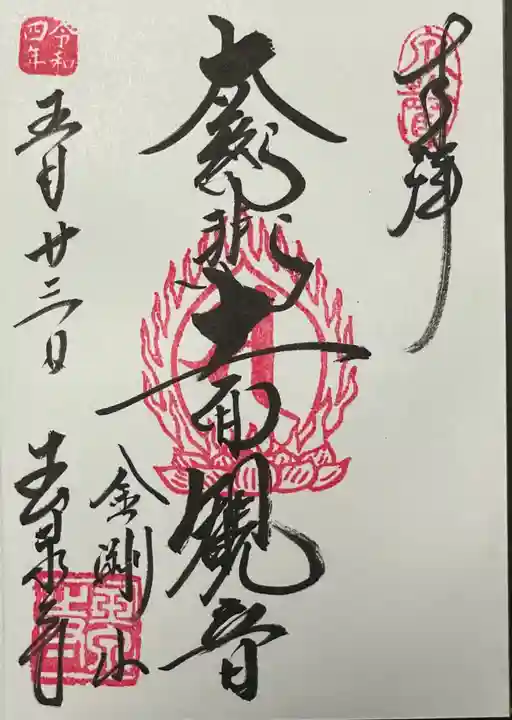 奉拝
大慈悲
十一面観音
令和
四年
五月廿三日
玉泉寺